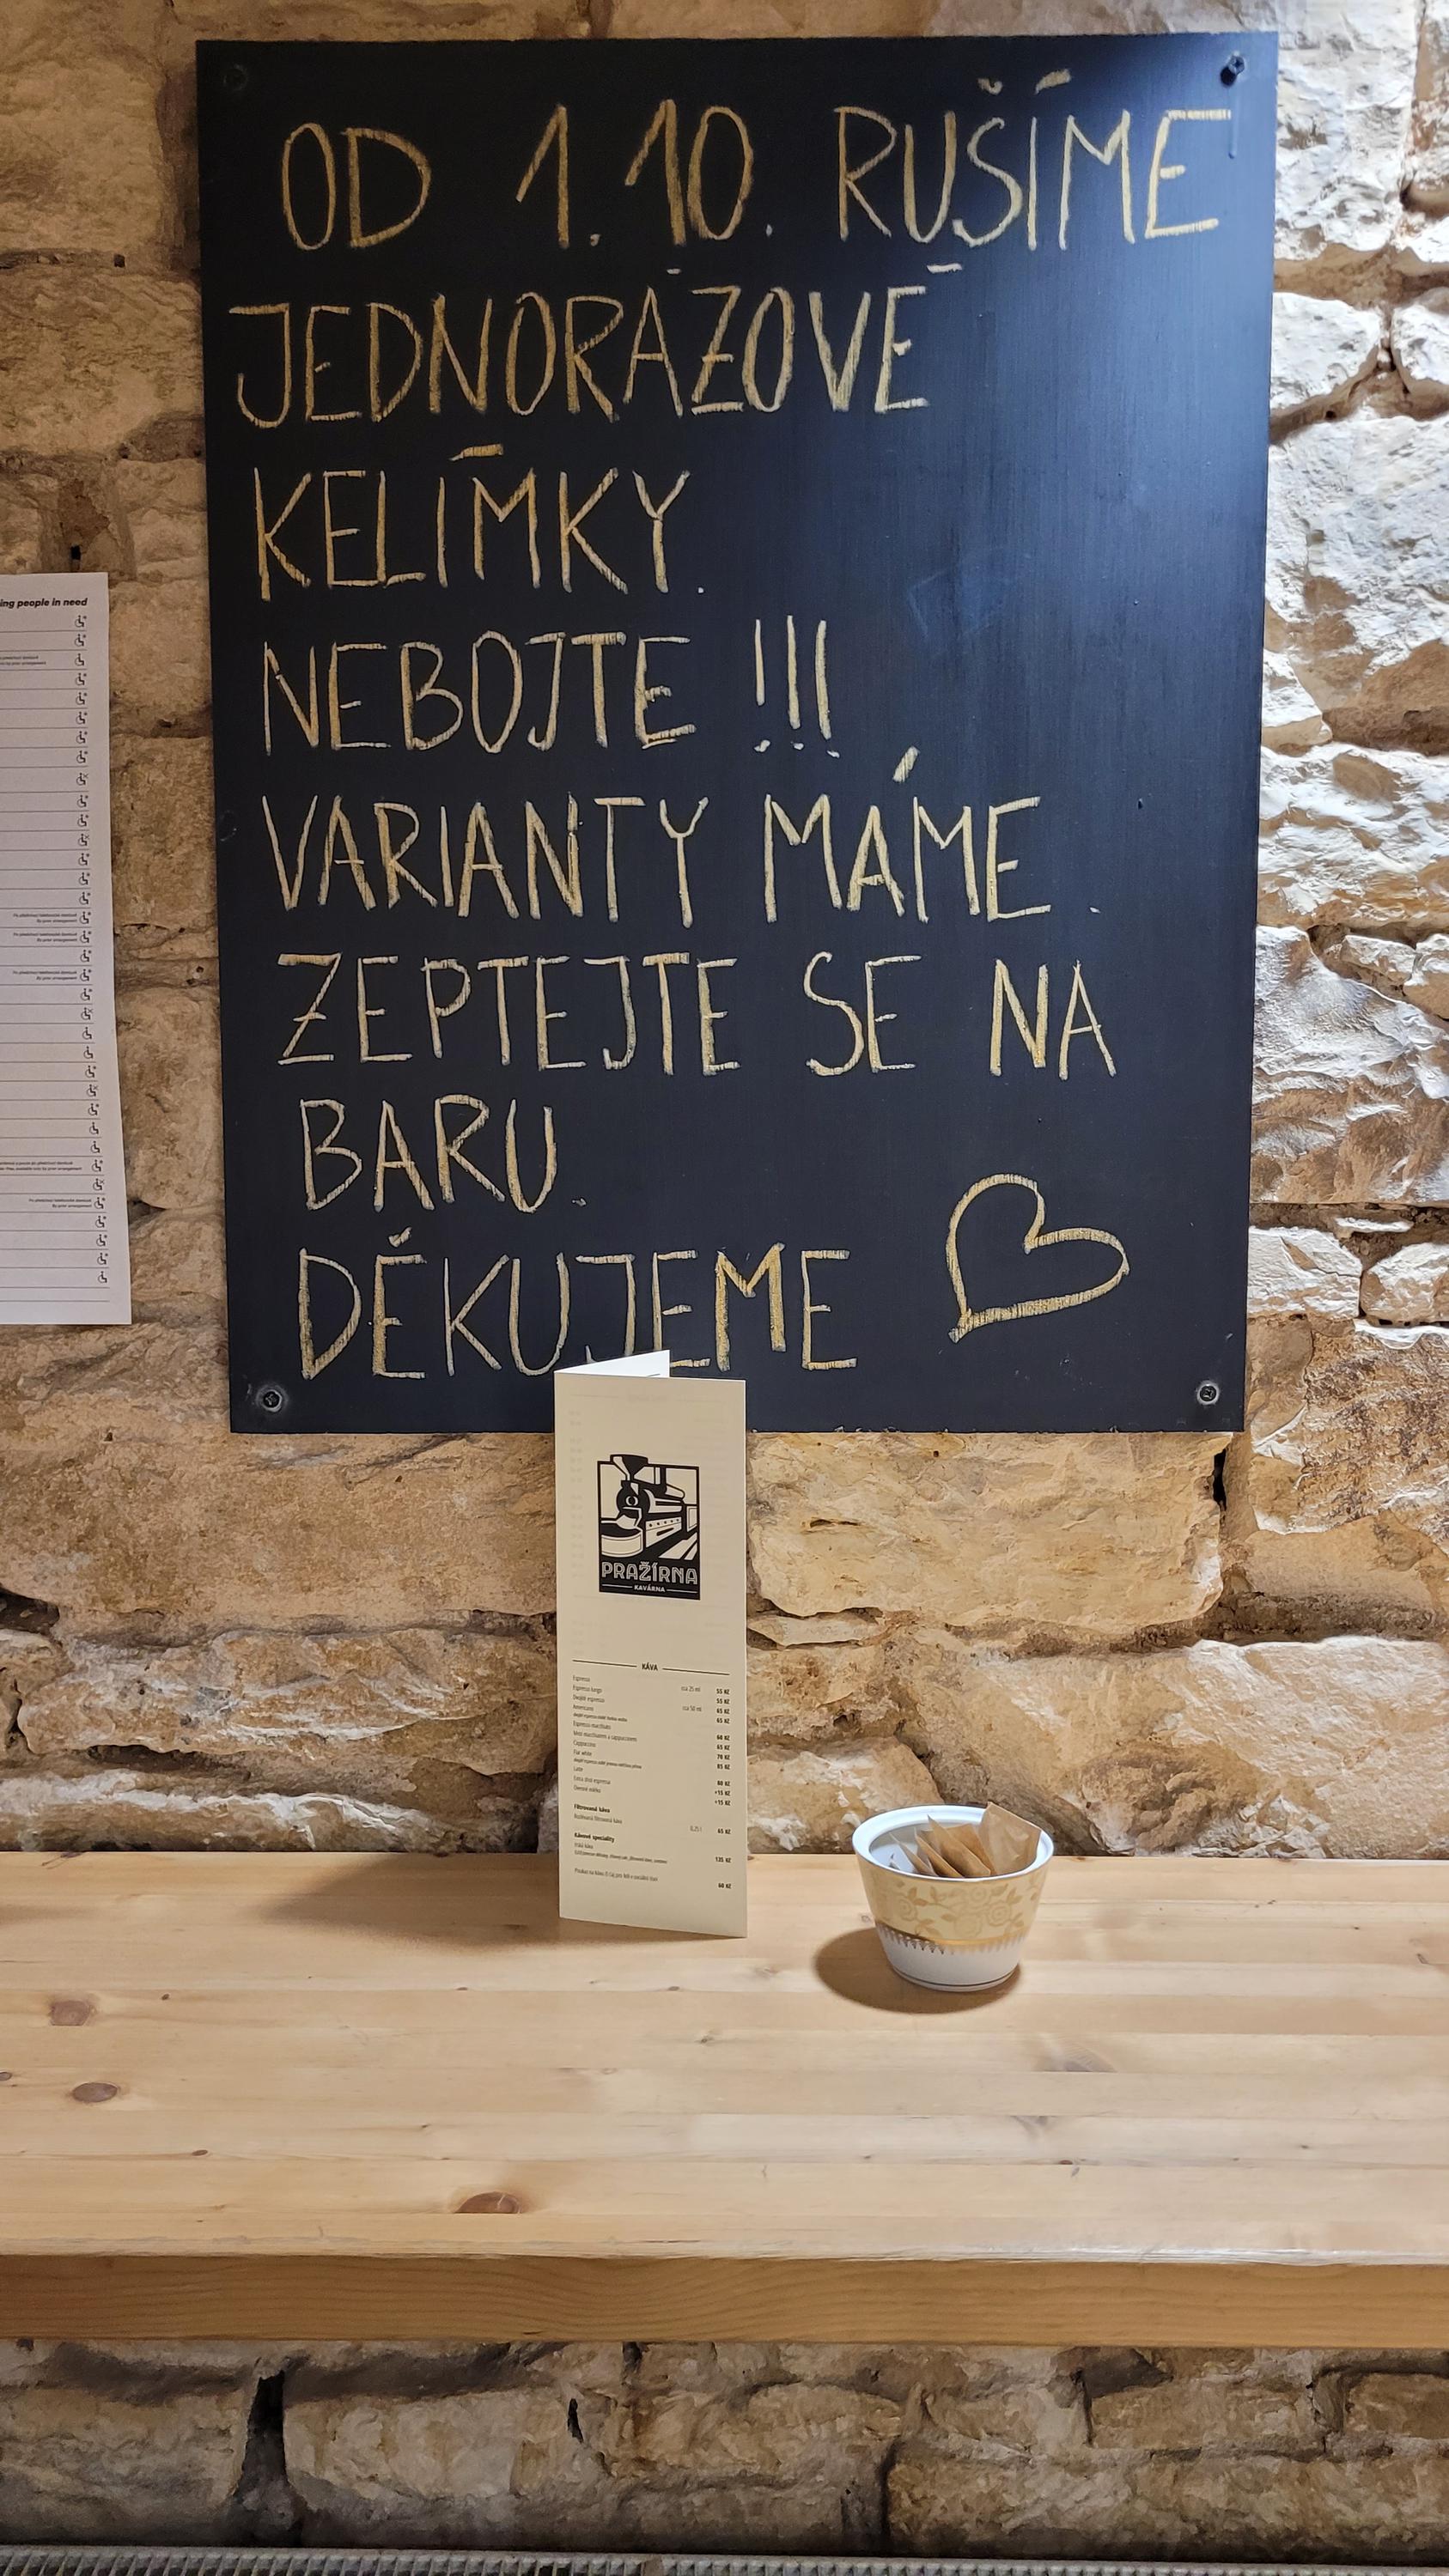 OD 1.10. RUŠÍME
JEDNORÁZOVÉ
KELÍMKY.
NEBOJTE !!!
VARIANTY MÁME.
ZEPTEJTE SE NA
BARU.
DĚKUJEME
ing people in need
PRAŽÍRNA
KAVÁRNA
KÁVA
Espresso cca 25 ml 55 Kč
Espresso lungo 55 Kč
Dvojité espresso cca 50 ml 65 Kč
Americano 65 Kč
Espresso macchiato 60 Kč
65 Kč
Cappuccino 70 Kč
Flat white 85 Kč
Latte 80 Kč
Extra shot espressa +15 Kč
+15 Kč
Filtrovaná káva
0,25 l 65 Kč
Kávové speciality
Irská káva
135 Kč
60 Kč